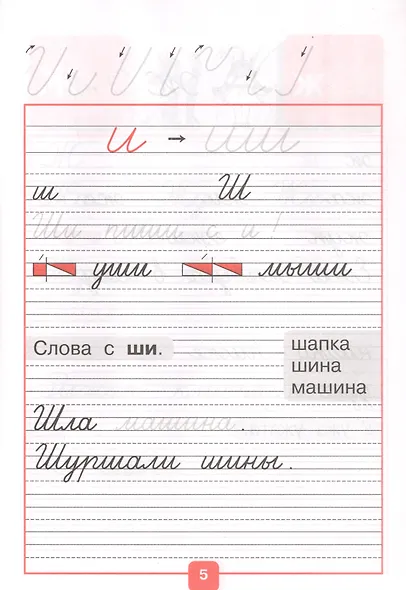 и → ш
ш Ш
Ши пиши с и!
уши мыши
Слова с ши.
шапка
шина
машина
Шла машина.
Шуршали шины.
5